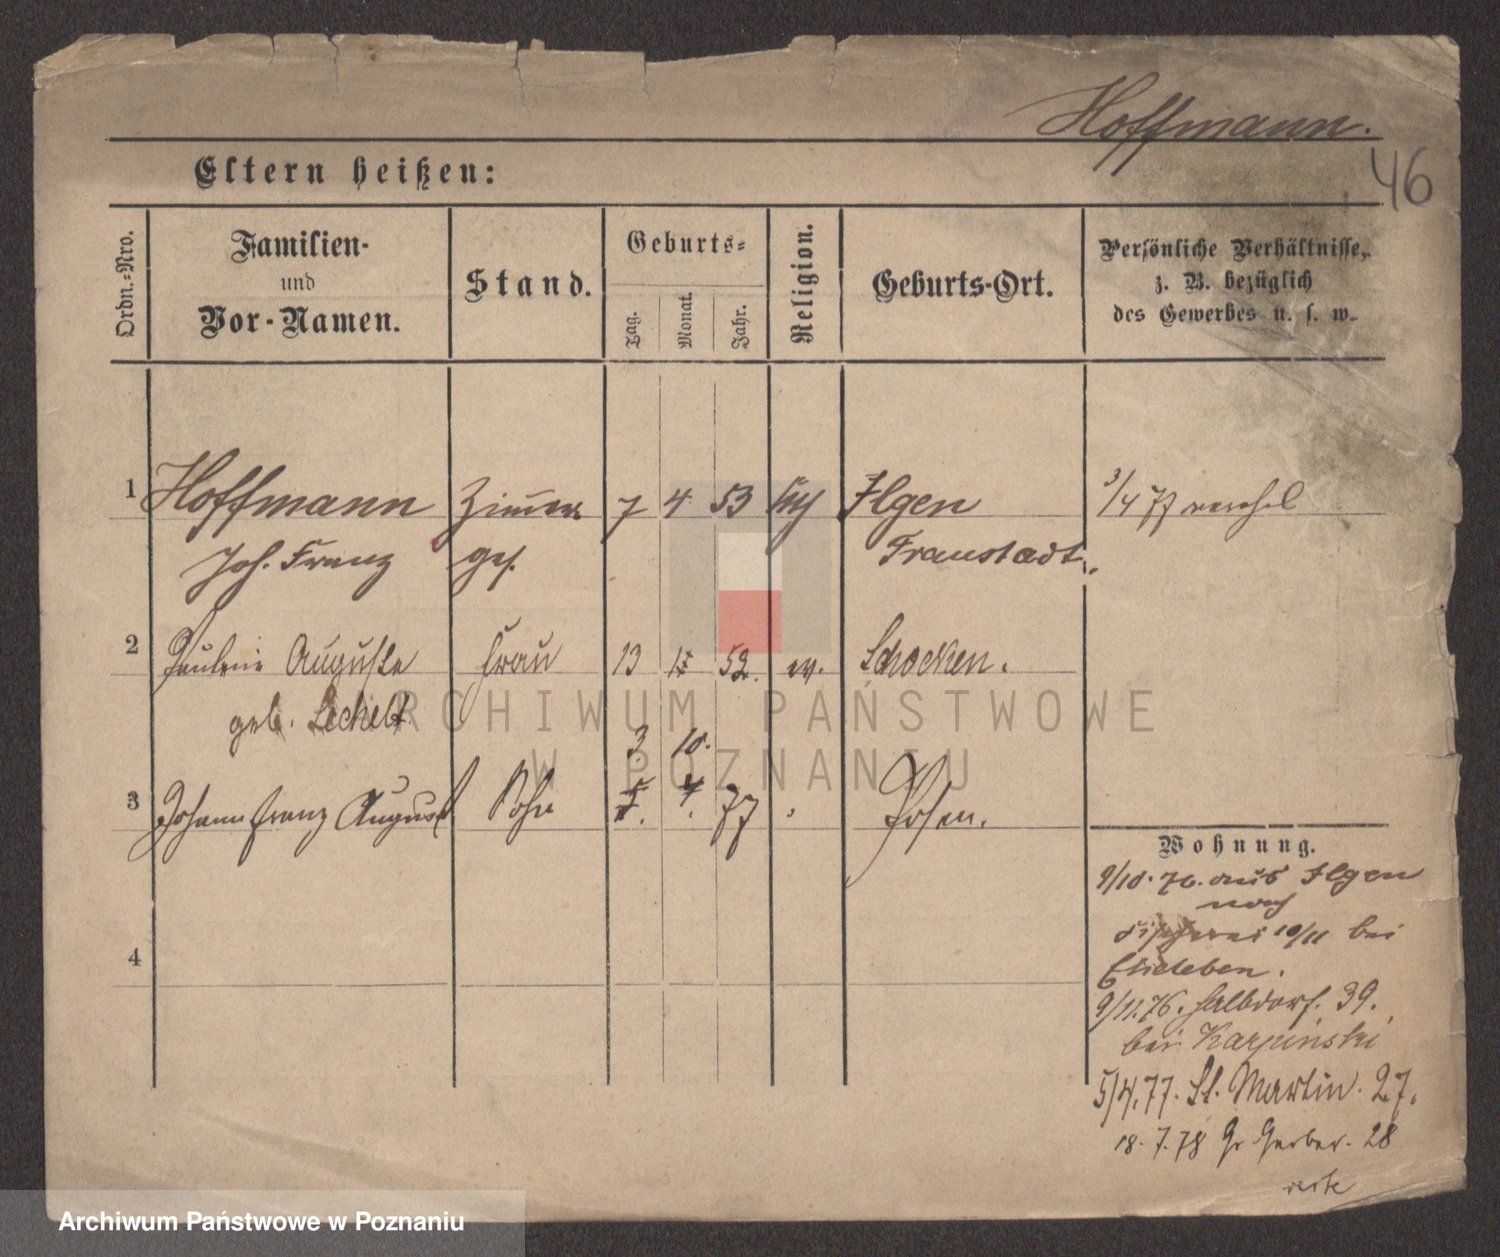 Hoffmann.
46
Eltern heißen:
Ordn.-Nro.
Familien-
und
Vor-Namen.
Stand.
Geburts-
Tag.
Monat.
Jahr.
Religion.
Geburts-Ort.
Persönliche Verhältnisse,
z. B. bezüglich
des Gewerbes u. s. w.
1 Hoffmann Zimmer 7 4 53 Ilgen 3/4 77
Joh. Franz ges. Fraustadt.
2 Pauline Auguste Frau 13 52. ev. Schocken.
geb. Lechelt
3 10.
3 Johann Franz August Sohn 77 Posen.
4
Wohnung.
9/10. 76. aus Ilgen
nach
Fischerei 10/11 bei
9/11.76. Halbdorf. 39.
bei Karpinski
5/4.77. St. Martin. 27.
18. 7. 78 Gr Gerber. 28
ARCHIWUM PAŃSTWOWE
W POZNANIU
Archiwum Państwowe w Poznaniu